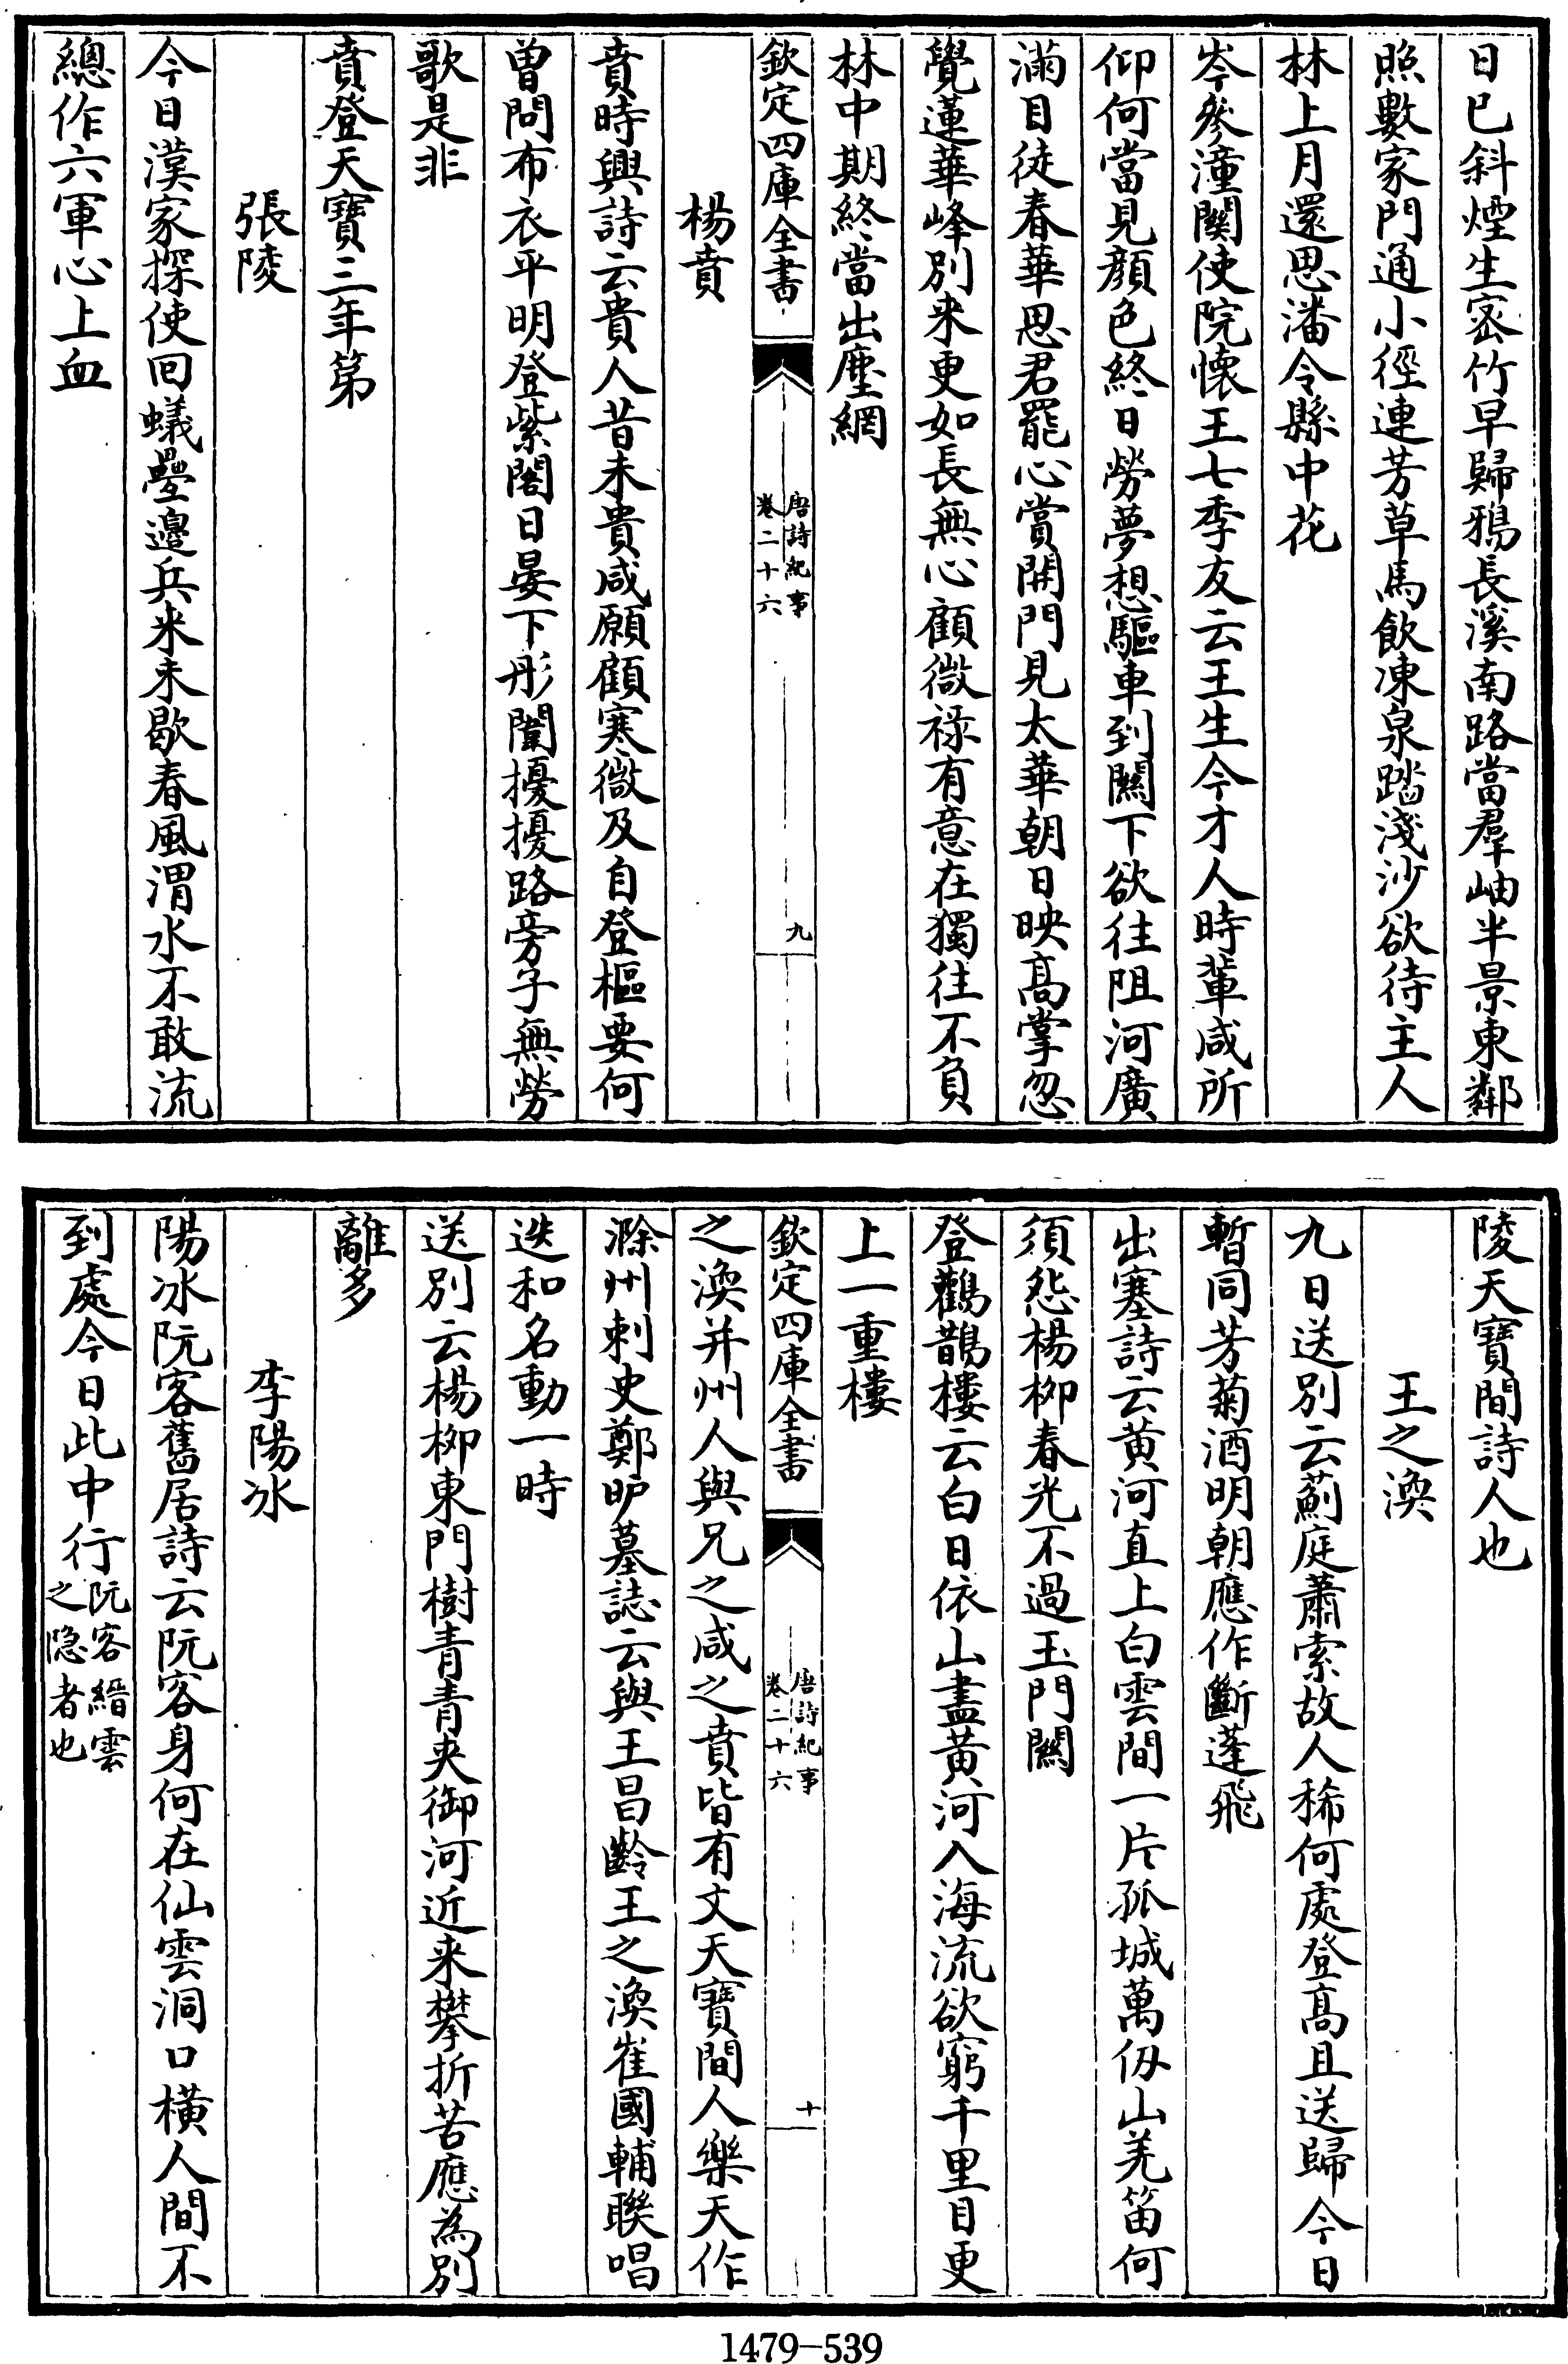 日已斜煙生密竹早歸鴉長溪南路當羣岫半景東鄰
照數家門通小徑連芳草馬飲凍泉踏淺沙欲待主人
林上月還思潘令縣中花
岑參潼關使院懷王七季友云王生今才人時輩咸所
仰何當見顔色終日勞夢想驅車到闗下欲往阻河廣
滿目徒春華思君罷心賞開門見太華朝日映髙掌忽
覺蓮華峰別来更如長無心顧微祿有意在獨往不負
林中期終當出塵網
欽定四庫全書
唐詩紀事
卷二十六
九
楊賁
賁時興詩云貴人昔未貴咸願顧寒微及自登樞要何
曽問布衣平明登紫閣日晏下彤闈擾擾路旁子無勞
歌是非
賁登天寶三年第
張陵
今日漢家探使回蟻壘邉兵来未歇春風渭水不敢流
總作六軍心上血
陵天寶間詩人也
王之渙
九日送別云薊庭蕭索故人稀何處登髙且送歸今日
暫同芳菊酒明朝應作斷蓬飛
出塞詩云黄河直上白雲間一片孤城萬仞山羌笛何
須怨楊栁春光不過玉門闗
登鸛鵲樓云白日依山盡黄河入海流欲窮千里目更
上一重樓
欽定四庫全書
唐詩紀事
卷二十六
十
之渙并州人與兄之咸之賁皆有文天寶間人樂天作
滁州刺史鄭昈墓誌云與王昌齡王之渙崔國輔聯唱
迭和名動一時
送別云楊栁東門樹青青夾御河近来攀折苦應為別
離多
李陽冰
陽冰阮客舊居詩云阮客身何在仙雲洞口橫人間不
到處今日此中行阮客縉雲
之隐者也
1479-539